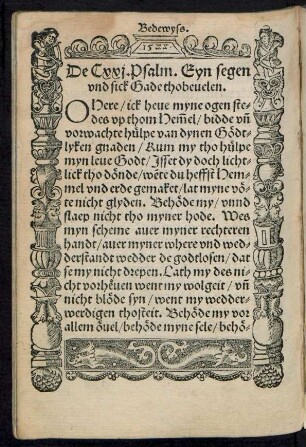 Bedewyss.
De Cxxj. Psalm. Eyn segen
vnd sick Gade thobeuelen.
O Here / ick heue myne ogen ste-
des vp thom Hem̃el / bidde vñ
vorwachte hůlpe van dynen Gödt-
lyken gnaden / Kum my tho hůlpe
myn leue Godt / Isset dy doch licht-
lick tho dönde / wẽte du heffst Hem-
mel vnd erde gemaket / lat myne võ-
te nicht glyden. Behöde my / vnnd
slaep nicht tho myner hode. Wes
myn scheme auer myner rechteren
handt / auer myner where vnd wed-
derstandt wedder de godtlosen / dat
se my nicht drepen. Lath my des ni-
cht vorhẽuen went my wolgeit / vñ
nicht blöde syn / went my wedder-
werdigen thosteit. Behöde my vor
allem õuel / behöde myne sele / behö-